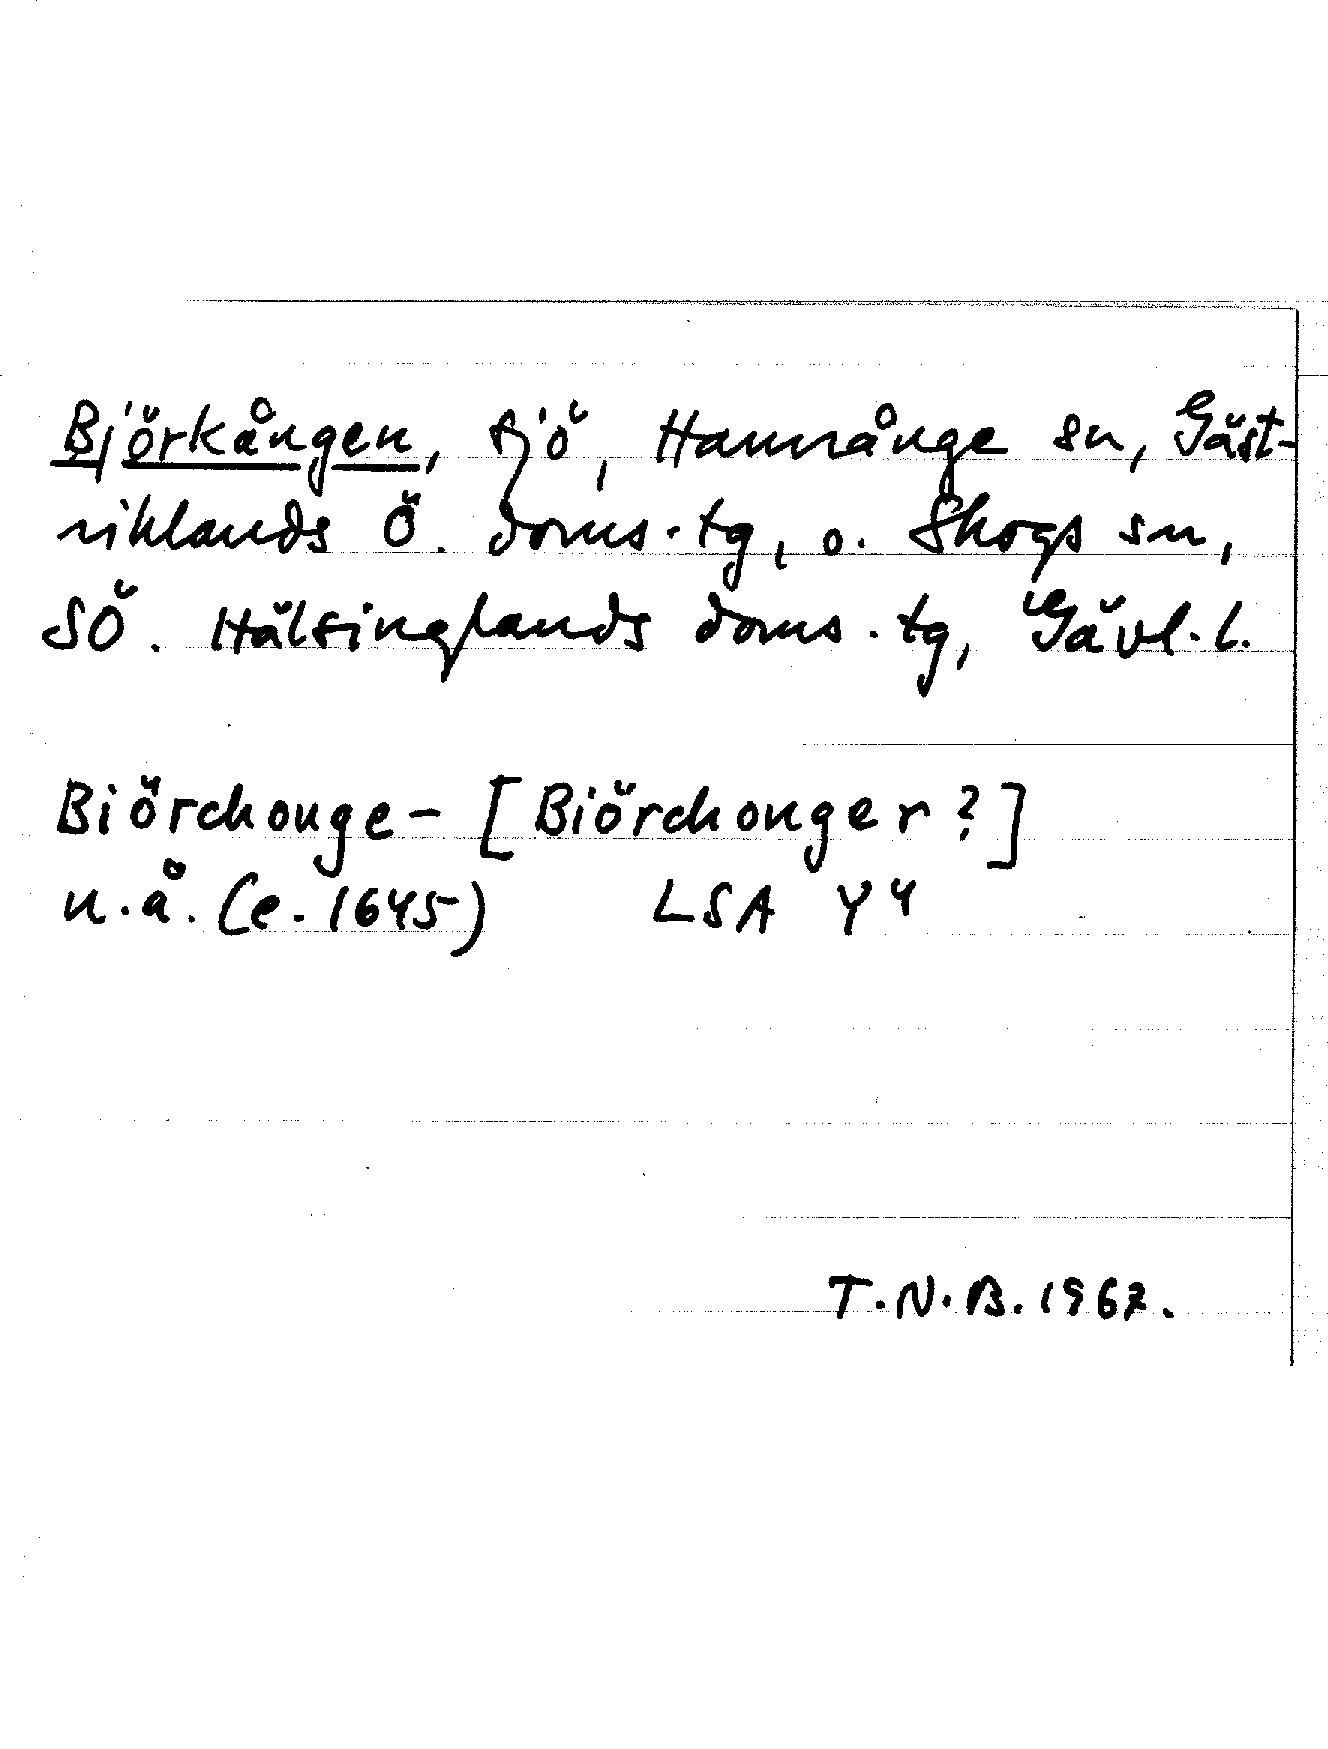 Björkången, sjö, Hamrånge sn, Gäst-
riklands Ö. doms.tg, o. Skogs sn,
SÖ. Hälsinglands doms.tg, Gävl.l.
Biörchonge- [Biörchonger?]
u.å. (e. 1645) LSA Y4
T.N.B. 1967.